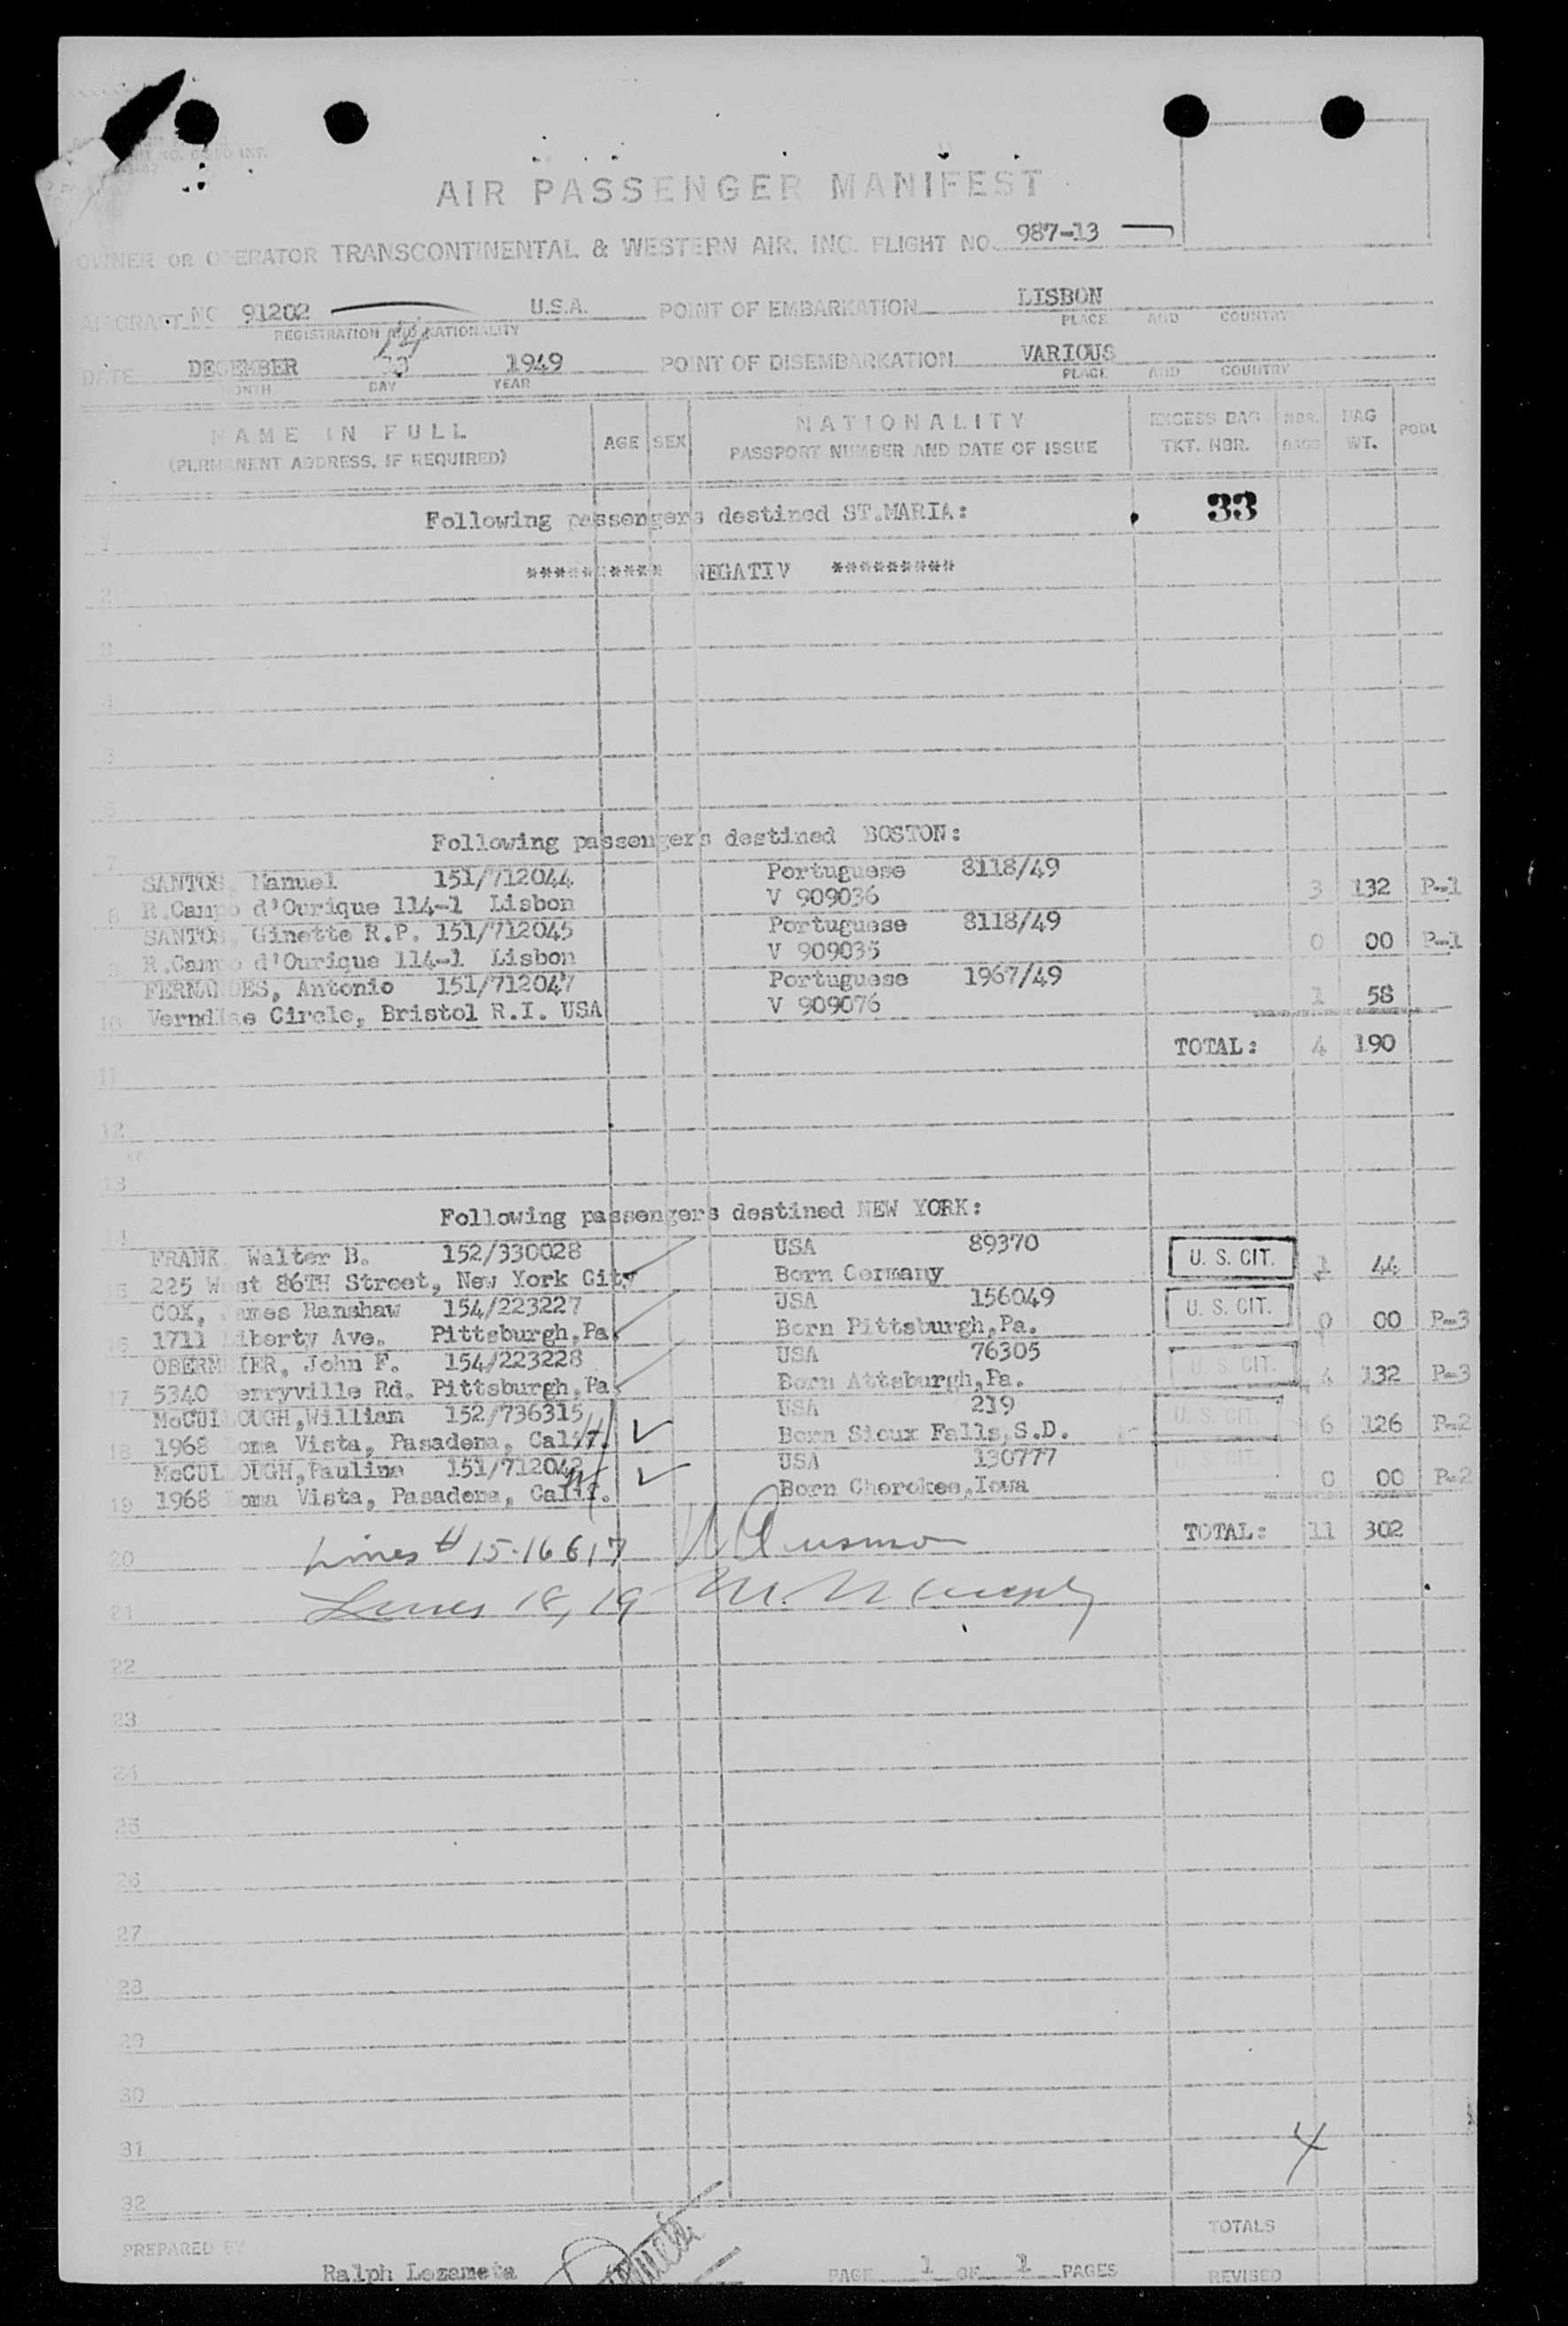 AIR PASSENGER MANIFEST
OWNER OR OPERATOR TRANSCONTINENTAL & WESTERN AIR. INC. FLIGHT NO. 987-13
AIRCRAFT NO 91202 U.S.A. POINT OF EMBARKATION LISBON
REGISTRATION AND NATIONALITY PLACE AND COUNTRY
DATE DECEMBER 1949 POINT OF DISEMBARKATION VARIOUS
MONTH DAY YEAR PLACE AND COUNTRY
NAME IN FULL AGE SEX NATIONALITY EXCESS BAG NBR. BAG POOL
(PERMANENT ADDRESS, IF REQUIRED) PASSPORT NUMBER AND DATE OF ISSUE TKT. NBR. BAGS WT.
Following passengers destined ST.MARIA: 33
********** NEGATIV *********
Following passengers destined BOSTON:
SANTOS, Manuel 151/712044 Portuguese 8118/49
R.Campo d'Ourique 114-1 Lisbon V 909036 3 132 P-1
SANTOS, Ginette R.P. 151/712045 Portuguese 8118/49
R.Campo d'Ourique 114-1 Lisbon V 909035 0 00 P-1
FERNANDES, Antonio 151/712047 Portuguese 1967/49
10 Verndlae Circle, Bristol R.I. USA V 909076 1 58
TOTAL: 4 190
11
12
13
Following passengers destined NEW YORK:
FRANK Walter B. 152/330028 USA 89370 U. S. CIT.
225 West 86TH Street, New York City Born Germany 1 44
COX, James Ranshaw 154/223227 USA 156049 U. S. CIT.
16 1711 Liberty Ave. Pittsburgh,Pa. Born Pittsburgh,Pa. 0 00 P-3
OBERMEIER, John F. 154/223228 USA 76305 U. S. CIT.
17 5340 erryville Rd. Pittsburgh,Pa. Born Attsburgh,Pa. 4 132 P-3
McCULLOUGH,William 152/736315 USA 219 U. S. CIT.
18 1968 Loma Vista, Pasadena, Calif. Born Sioux Falls,S.D. 6 126 P-2
McCULLOUGH,Pauline 151/712042 USA 130777 U. S. CIT.
19 1968 Loma Vista, Pasadena, Calif. Born Cherokee,Iowa 0 00 P-2
TOTAL: 11 302
20 Lines # 15-16 & 17
21 Lines 18, 19
22
23
24
25
26
27
28
29
30
31
4
32
TOTALS
PREPARED BY Ralph Lozameta PAGE 1 OF 1 PAGES
REVISED